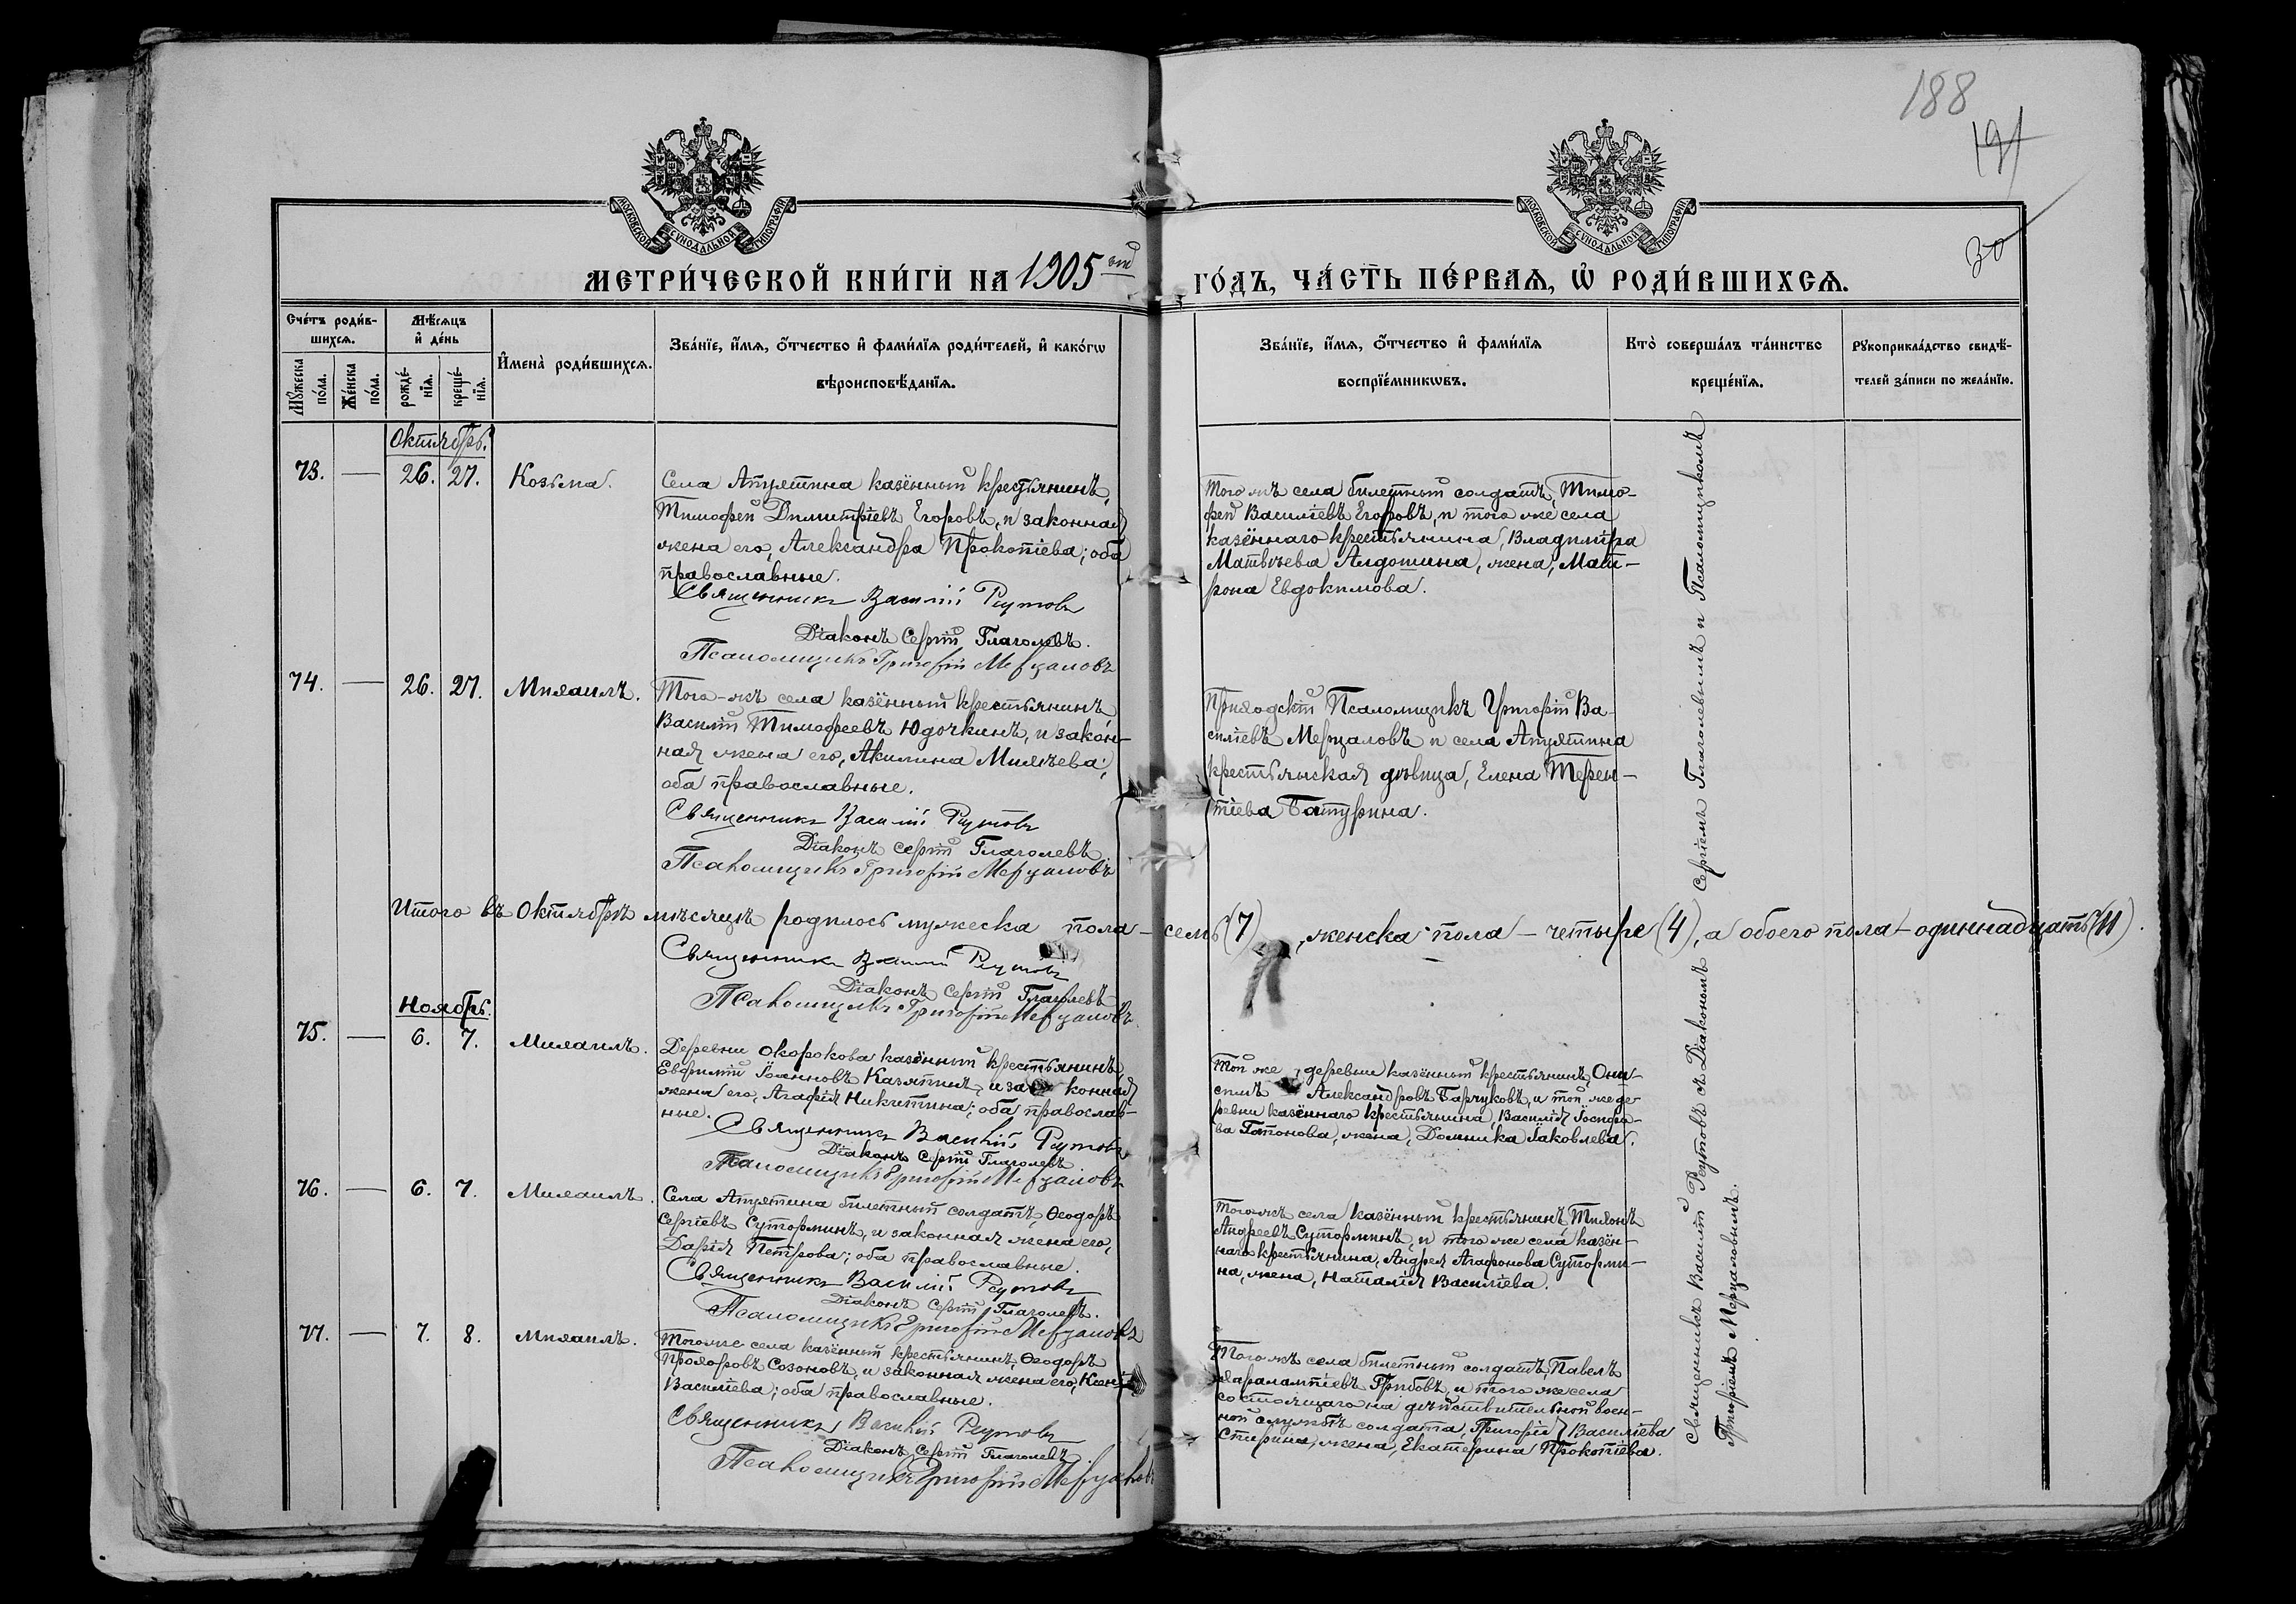 188
191
30
МОСКОВСКОЙ СѴНОДАЛЬНОЙ ТИПОГРАФІИ
МОСКОВСКОЙ СѴНОДАЛЬНОЙ ТИПОГРАФІИ
МЕТРИ́ЧЕСКОЙ КНИ́ГИ НА 1905 ый ГО́ДЪ, ЧА́СТЬ ПЕ́РВАЯ, Ѡ҆ РОДИ́ВШИХСЯ.
Сче́тъ роди́в-
шихся.
Мꙋ́жеска по́ла.
Же́нска по́ла.
Мѣ́сяцъ и҆ де́нь
рожде́-нїя.
креще́-нїя.
И҆мена̀ роди́вшихся.
Зва́нїе, и҆́мя, ѻ҆́тчество и҆ фами́лїя роди́телей, и҆ како́гѡ
вѣроисповѣ́данїя.
Зва́нїе, и҆́мя, ѻ҆́тчество и҆ фами́лїя
воспрїе́мникѡвъ.
Кто̀ соверша́лъ та́инство
креще́нїя.
Рꙋкоприкла́дство свидѣ́-
телей за́писи по жела́нїю.
Октябрь.
73. — 26. 27. Козьма.
Села Апухтина казённый крестьянинъ,
Тимофей Димитріевъ Егоровъ, и законная
жена его, Александра Прокопіева; оба
православные.
Священникъ Василій Реутовъ
Діаконъ Сергій Глаголевъ.
Псаломщикъ Григорій Мерцаловъ
Того-жъ села билетный солдатъ, Тимо-
фей Василіевъ Егоровъ, и того же села
казённаго крестьянина, Владиміра
Матвѣева Алдошина, жена, Мат-
рона Евдокимова.
74. — 26. 27. Михаилъ.
Того-жъ села казённый крестьянинъ
Василій Тимофеевъ Юдочкинъ, и закон-
ная жена его, Акилина Михѣева;
оба православные.
Священникъ Василій Реутовъ
Діаконъ Сергій Глаголевъ
Псаломщикъ Григорій Мерцаловъ
Приходскій Псаломщикъ Григорій Ва-
силіевъ Мерцаловъ и села Апухтина
крестьянская дѣвица, Елена Терен-
тіева Батурина.
Итого въ Октябрѣ мѣсяцѣ родилось мужеска пола – семь (7), женска пола – четыре (4), а обоего пола – одиннадцать (11).
Священникъ Василій Реутовъ
Діаконъ Сергій Глаголевъ
Псаломщикъ Григорій Мерцаловъ
Ноябрь.
75. — 6. 7. Михаилъ.
Деревни Окорокова казённый крестьянинъ
Евфимій Іоанновъ Казятинъ, и законная
жена его, Агафія Никитина; оба православ-
ные.
Священникъ Василій Реутовъ
Діаконъ Сергій Глаголевъ
Псаломщикъ Григорій Мерцаловъ
Той же деревни казённый крестьянинъ, Они-
симъ Александровъ Барчуковъ, и той же де-
ревни казённаго крестьянина, Василія Іосифо-
ва Гапонова, жена, Домника Іаковлева.
76. — 6. 7. Михаилъ.
Села Апухтина билетный солдатъ, Ѳеодоръ
Сергіевъ Суторминъ, и законная жена его,
Дарія Петрова; оба православные.
Священникъ Василій Реутовъ
Діаконъ Сергій Глаголевъ.
Псаломщикъ Григорій Мерцаловъ
Того-жъ села казённый крестьянинъ, Тихонъ
Андреевъ Суторминъ, и того же села казён-
наго крестьянина, Андрея Агафонова Сутормин-
на, жена, Наталія Василіева.
77. — 7. 8. Михаилъ.
Того же села казённый крестьянинъ, Ѳеодоръ
Прохоровъ Созоновъ, и законная жена его,
Василіева; оба православные.
Священникъ Василій Реутовъ
Діаконъ Сергій Глаголевъ.
Псаломщикъ Григорій Мерцаловъ
Того-жъ села билетный солдатъ, Павелъ
Харалампіевъ Грибовъ, и того же села
состоящаго на дѣйствительной воен-
ной службѣ солдата, Григорія Василіева
жена, Екатерина Прокопіева.
Священникъ Василій Реутовъ съ Діакономъ Сергіемъ Глаголевымъ и Псаломщикомъ
Григоріемъ Мерцаловымъ.